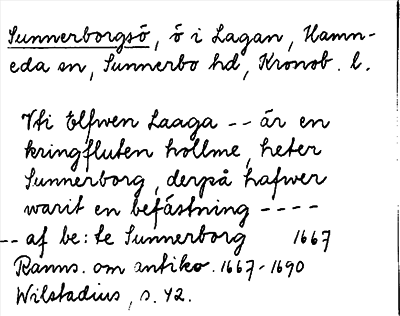 Sunnerborgsö, ö i Lagan, Hamn-
eda sn, Sunnerbo hd, Kronob. l.
Vti Elfwen Laaga -- är en
kringfluten hollme, heter
Sunnerborg, derpå hafwer
warit en befästning ----
-- af be: te Sunnerborg 1667
Ranns. om antikv. 1667-1690
Wilstadius, s. 42.